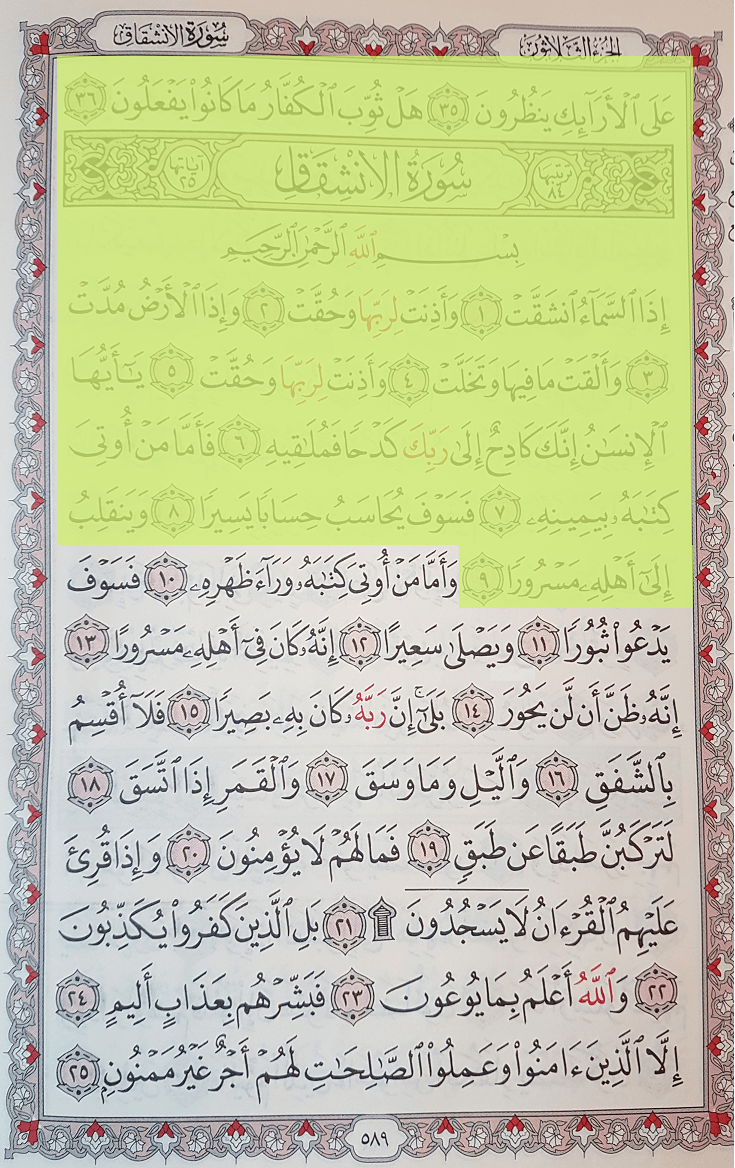 سُورَةُ الانْشِقَاقِ الجُزءُ الثَّلَاثُونَ
عَلَى ٱلْأَرَآئِكِ يَنظُرُونَ ٣٥ هَلْ ثُوِّبَ ٱلْكُفَّارُ مَا كَانُوا۟ يَفْعَلُونَ ٣٦
ترتيبها ٨٤ سُورَةُ الانْشِقَاقِ آياتها ٢٥
بِسْمِ ٱللَّهِ ٱلرَّحْمَٰنِ ٱلرَّحِيمِ
إِذَا ٱلسَّمَآءُ ٱنشَقَّتْ ١ وَأَذِنَتْ لِرَبِّهَا وَحُقَّتْ ٢ وَإِذَا ٱلْأَرْضُ مُدَّتْ
٣ وَأَلْقَتْ مَا فِيهَا وَتَخَلَّتْ ٤ وَأَذِنَتْ لِرَبِّهَا وَحُقَّتْ ٥ يَٰٓأَيُّهَا
ٱلْإِنسَٰنُ إِنَّكَ كَادِحٌ إِلَىٰ رَبِّكَ كَدْحًا فَمُلَٰقِيهِ ٦ فَأَمَّا مَنْ أُوتِىَ
كِتَٰبَهُۥ بِيَمِينِهِۦ ٧ فَسَوْفَ يُحَاسَبُ حِسَابًا يَسِيرًا ٨ وَيَنقَلِبُ
إِلَىٰٓ أَهْلِهِۦ مَسْرُورًا ٩ وَأَمَّا مَنْ أُوتِىَ كِتَٰبَهُۥ وَرَآءَ ظَهْرِهِۦ ١٠ فَسَوْفَ
يَدْعُوا۟ ثُبُورًا ١١ وَيَصْلَىٰ سَعِيرًا ١٢ إِنَّهُۥ كَانَ فِىٓ أَهْلِهِۦ مَسْرُورًا ١٣
إِنَّهُۥ ظَنَّ أَن لَّن يَحُورَ ١٤ بَلَىٰٓ إِنَّ رَبَّهُۥ كَانَ بِهِۦ بَصِيرًا ١٥ فَلَآ أُقْسِمُ
بِٱلشَّفَقِ ١٦ وَٱلَّيْلِ وَمَا وَسَقَ ١٧ وَٱلْقَمَرِ إِذَا ٱتَّسَقَ ١٨
لَتَرْكَبُنَّ طَبَقًا عَن طَبَقٍ ١٩ فَمَا لَهُمْ لَا يُؤْمِنُونَ ٢٠ وَإِذَا قُرِئَ
عَلَيْهِمُ ٱلْقُرْءَانُ لَا يَسْجُدُونَ ۩ ٢١ بَلِ ٱلَّذِينَ كَفَرُوا۟ يُكَذِّبُونَ
٢٢ وَٱللَّهُ أَعْلَمُ بِمَا يُوعُونَ ٢٣ فَبَشِّرْهُم بِعَذَابٍ أَلِيمٍ ٢٤
إِلَّا ٱلَّذِينَ ءَامَنُوا۟ وَعَمِلُوا۟ ٱلصَّٰلِحَٰتِ لَهُمْ أَجْرٌ غَيْرُ مَمْنُونٍۭ ٢٥
٥٨٩